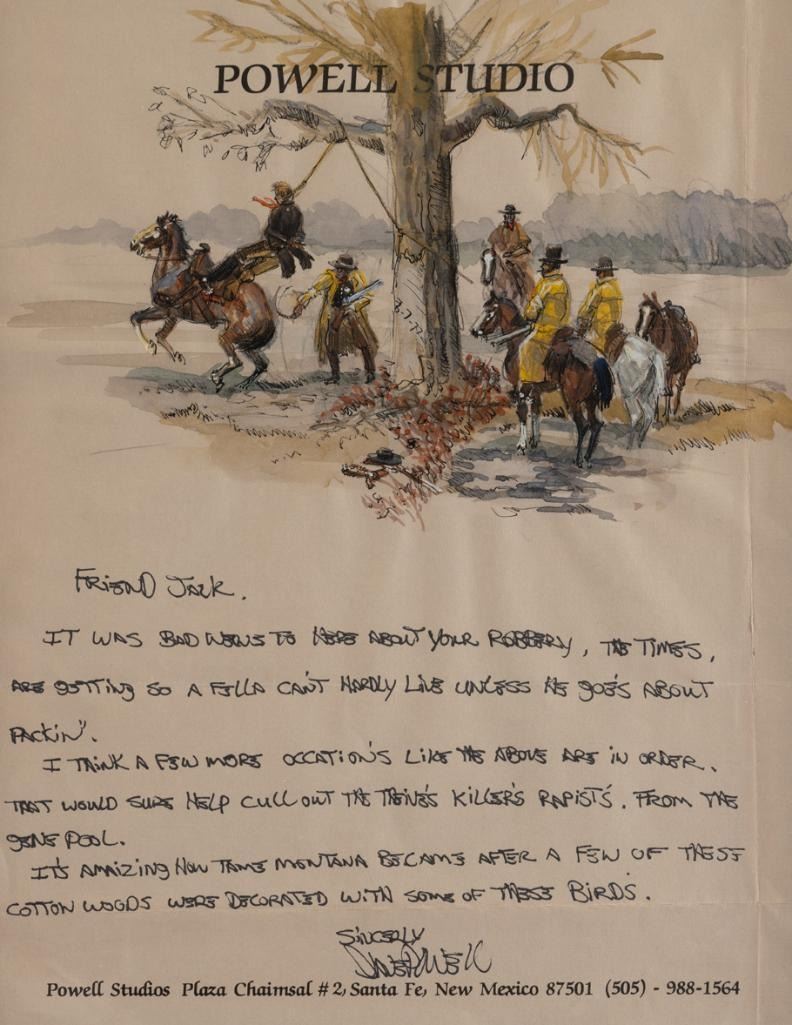 POWELL STUDIO
FRIEND JACK.
IT WAS BAD NEWS TO HERE ABOUT YOUR ROBBERY, THE TIMES,
ARE GETTING SO A FELLA CAN'T HARDLY LIVE UNLESS HE GOES ABOUT
PACKIN'.
I THINK A FEW MORE OCCATION'S LIKE THE ABOVE ARE IN ORDER.
THAT WOULD SURE HELP CULL OUT THE THEIVE'S KILLER'S RAPISTS'. FROM THE
GENE POOL.
IT'S AMAIZING HOW TAME MONTANA BECAME AFTER A FEW OF THESE
COTTON WOODS WERE DECORATED WITH SOME OF THESE BIRDS.
SINCERLY
Powell Studios Plaza Chaimsal # 2, Santa Fe, New Mexico 87501 (505) - 988-1564